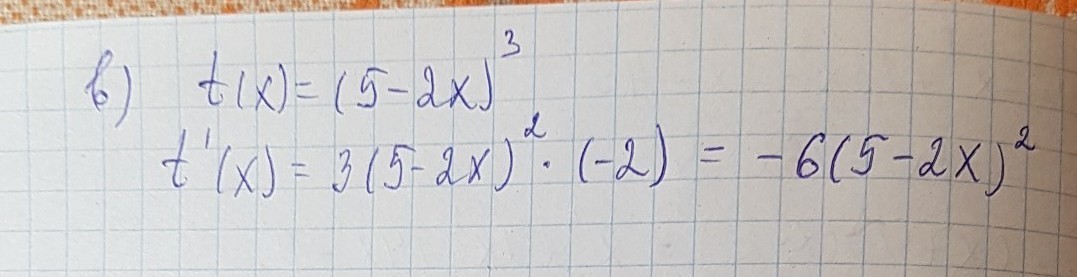 в) t(x)=(5-2x)³
t'(x)=3(5-2x)²·(-2)=-6(5-2x)²